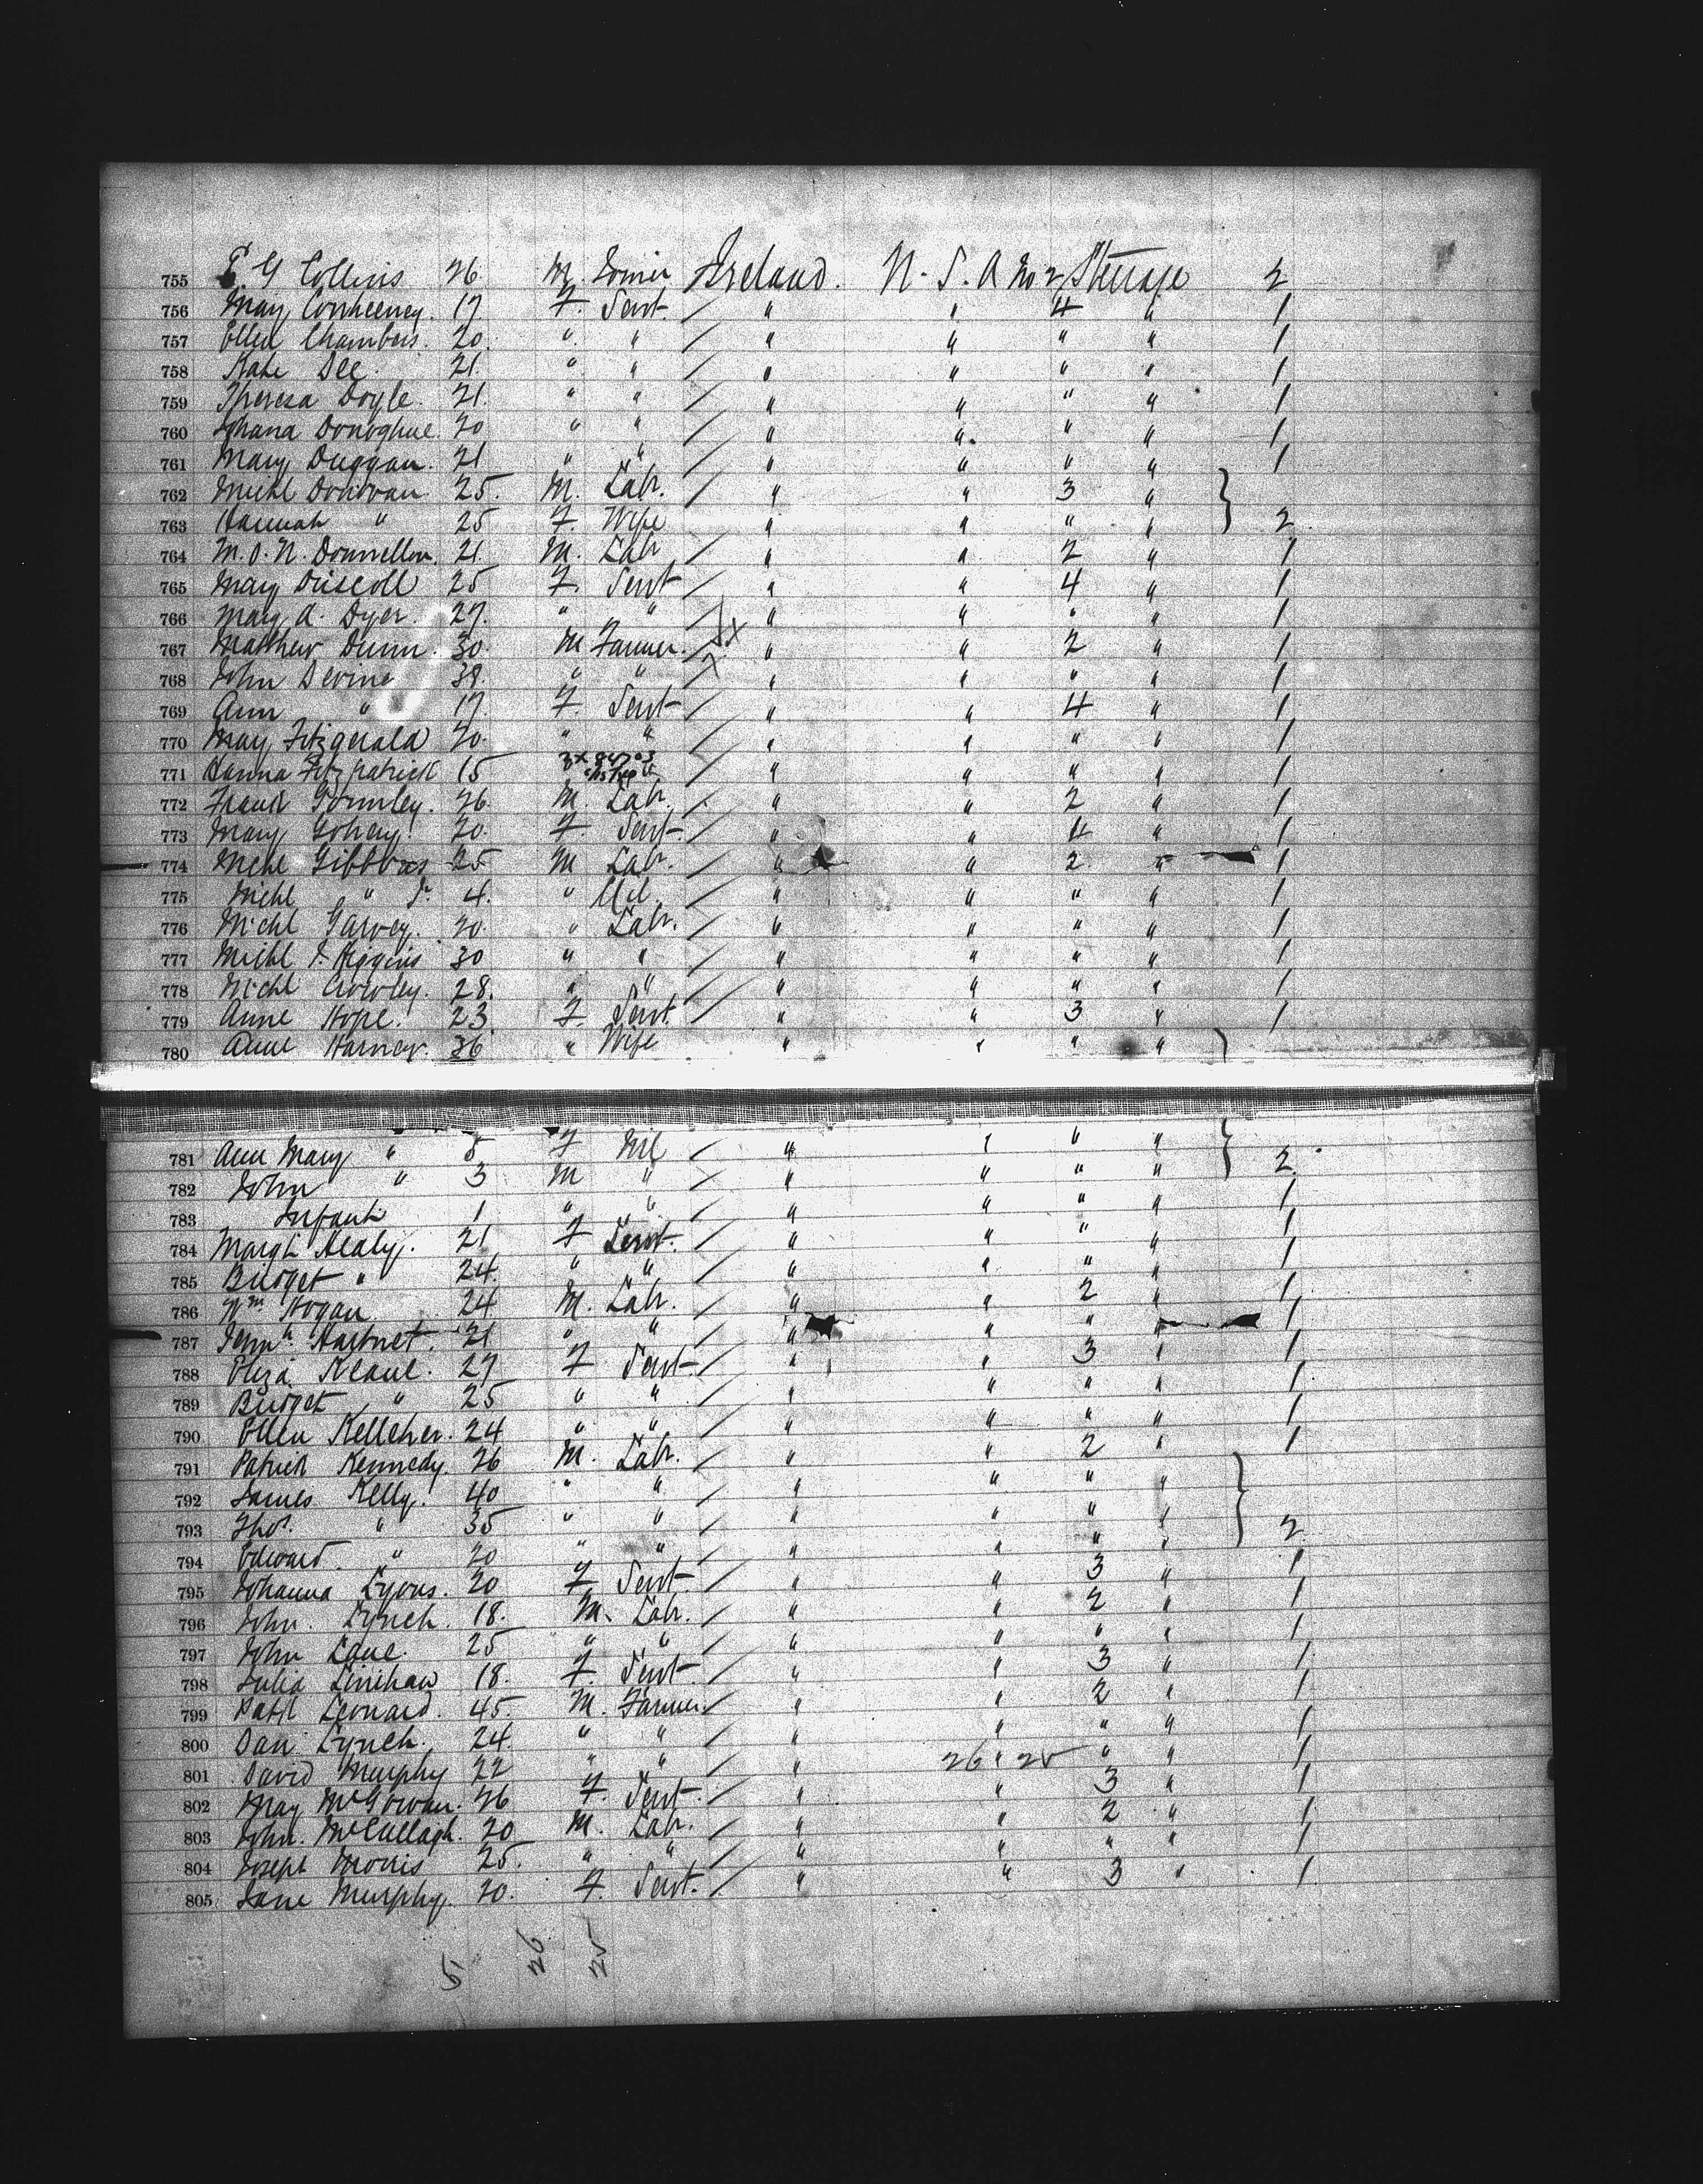 755 P. G Collins 26 M. Ireland. U. S. A No 2 Steerage 2
756 Mary Conheeney. 17 F. Servt. " " 4 " 1
757 Ellen Chambers. 20. " " " " " " 1
758 Kate Dee. 21. " " " " " " 1
759 Theresa Doyle. 21. " " " " " " 1
760 Johana Donoghue. 20 " " " " " " 1
761 Mary Duggan. 21 " " " " " " 1
762 Michl Donovan. 25. M. Labr. " " 3 "
763 Hannah " 25 F. Wife " " " " 2
764 M. O. N. Donnellon. 21. M. Labr " " 2 " 1
765 Mary Driscoll 25 F. Servt " " 4 " 1
766 Mary A. Dyer. 27. " " " " " " 1
767 Matthew Dunn. 30. M Farmer. " " 2 " 1
768 John Devine 38. " " " " " " 1
769 Ann " 17. F. Servt " " 4 " 1
770 May Fitzgerald 20. " " " " " " 1
771 Hanna Fitzpatrick 15 " " " " 1
772 Frank Gormley. 26. M. Labr. " " 2 " 1
773 Mary 20. F Servt. " " 4 " 1
774 Michl Gibbons 25 M Labr. " " 2 " 1
775 Michl " Jr. 4. " Nil. " " " " 1
776 Michl Garvey. 20. " Labr. " " " " 1
777 Michl J. Higgins 30 " " " " " " 1
778 Michl Crowley. 28. " " " " " " 1
779 Anne Hope. 23. F. Servt. " " 3 " 1
780 Anne 36 " Wife " " " "
781 Ann Mary " 5 F Nil " " " " 2
782 John " 3 M " " " " " 1
783 Infant 1 " " " " " " 1
784 Margt Healy. 21 F Servt. " " " " 1
785 Bridget " 24. " " " " " " 1
786 Wm Hogan 24 M. Labr. " " 2 " 1
787 Hartnet. 21 " " " " " " 1
788 Eliza Keane. 27 F Servt " " 3 " 1
789 Bridget " 25 " " " " " " 1
790 Ellen Kelleher. 24 " " " " " " 1
791 Patrick Kennedy. 26 M. Labr. " " 2 " 1
792 James Kelly. 40 " " " " " "
793 Thos. " 35 " " " " " " 2
794 Edward. " 20 " " " " " " 1
795 Johanna Lyons. 20 F Servt. " " 3 " 1
796 John. Lynch 18. M. Labr. " " 2 " 1
797 John Lane. 25 " " " " " " 1
798 Julia Linihan 18. F. Servt. " " 3 " 1
799 Patk Leonard. 45. M. Farmer " " 2 " 1
800 Dan Lynch. 24. " " " " " " 1
801 David Murphy 22 " " " 26 " 25 " " 1
802 May McGowan. 26 F. Servt. " " 3 " 1
803 John. McCullagh. 20 M. Labr. " " 2 " 1
804 Joseph Morris 25. " " " " " " 1
805 Jane Murphy. 20. F. Servt. " " 3 " 1
5 26 25